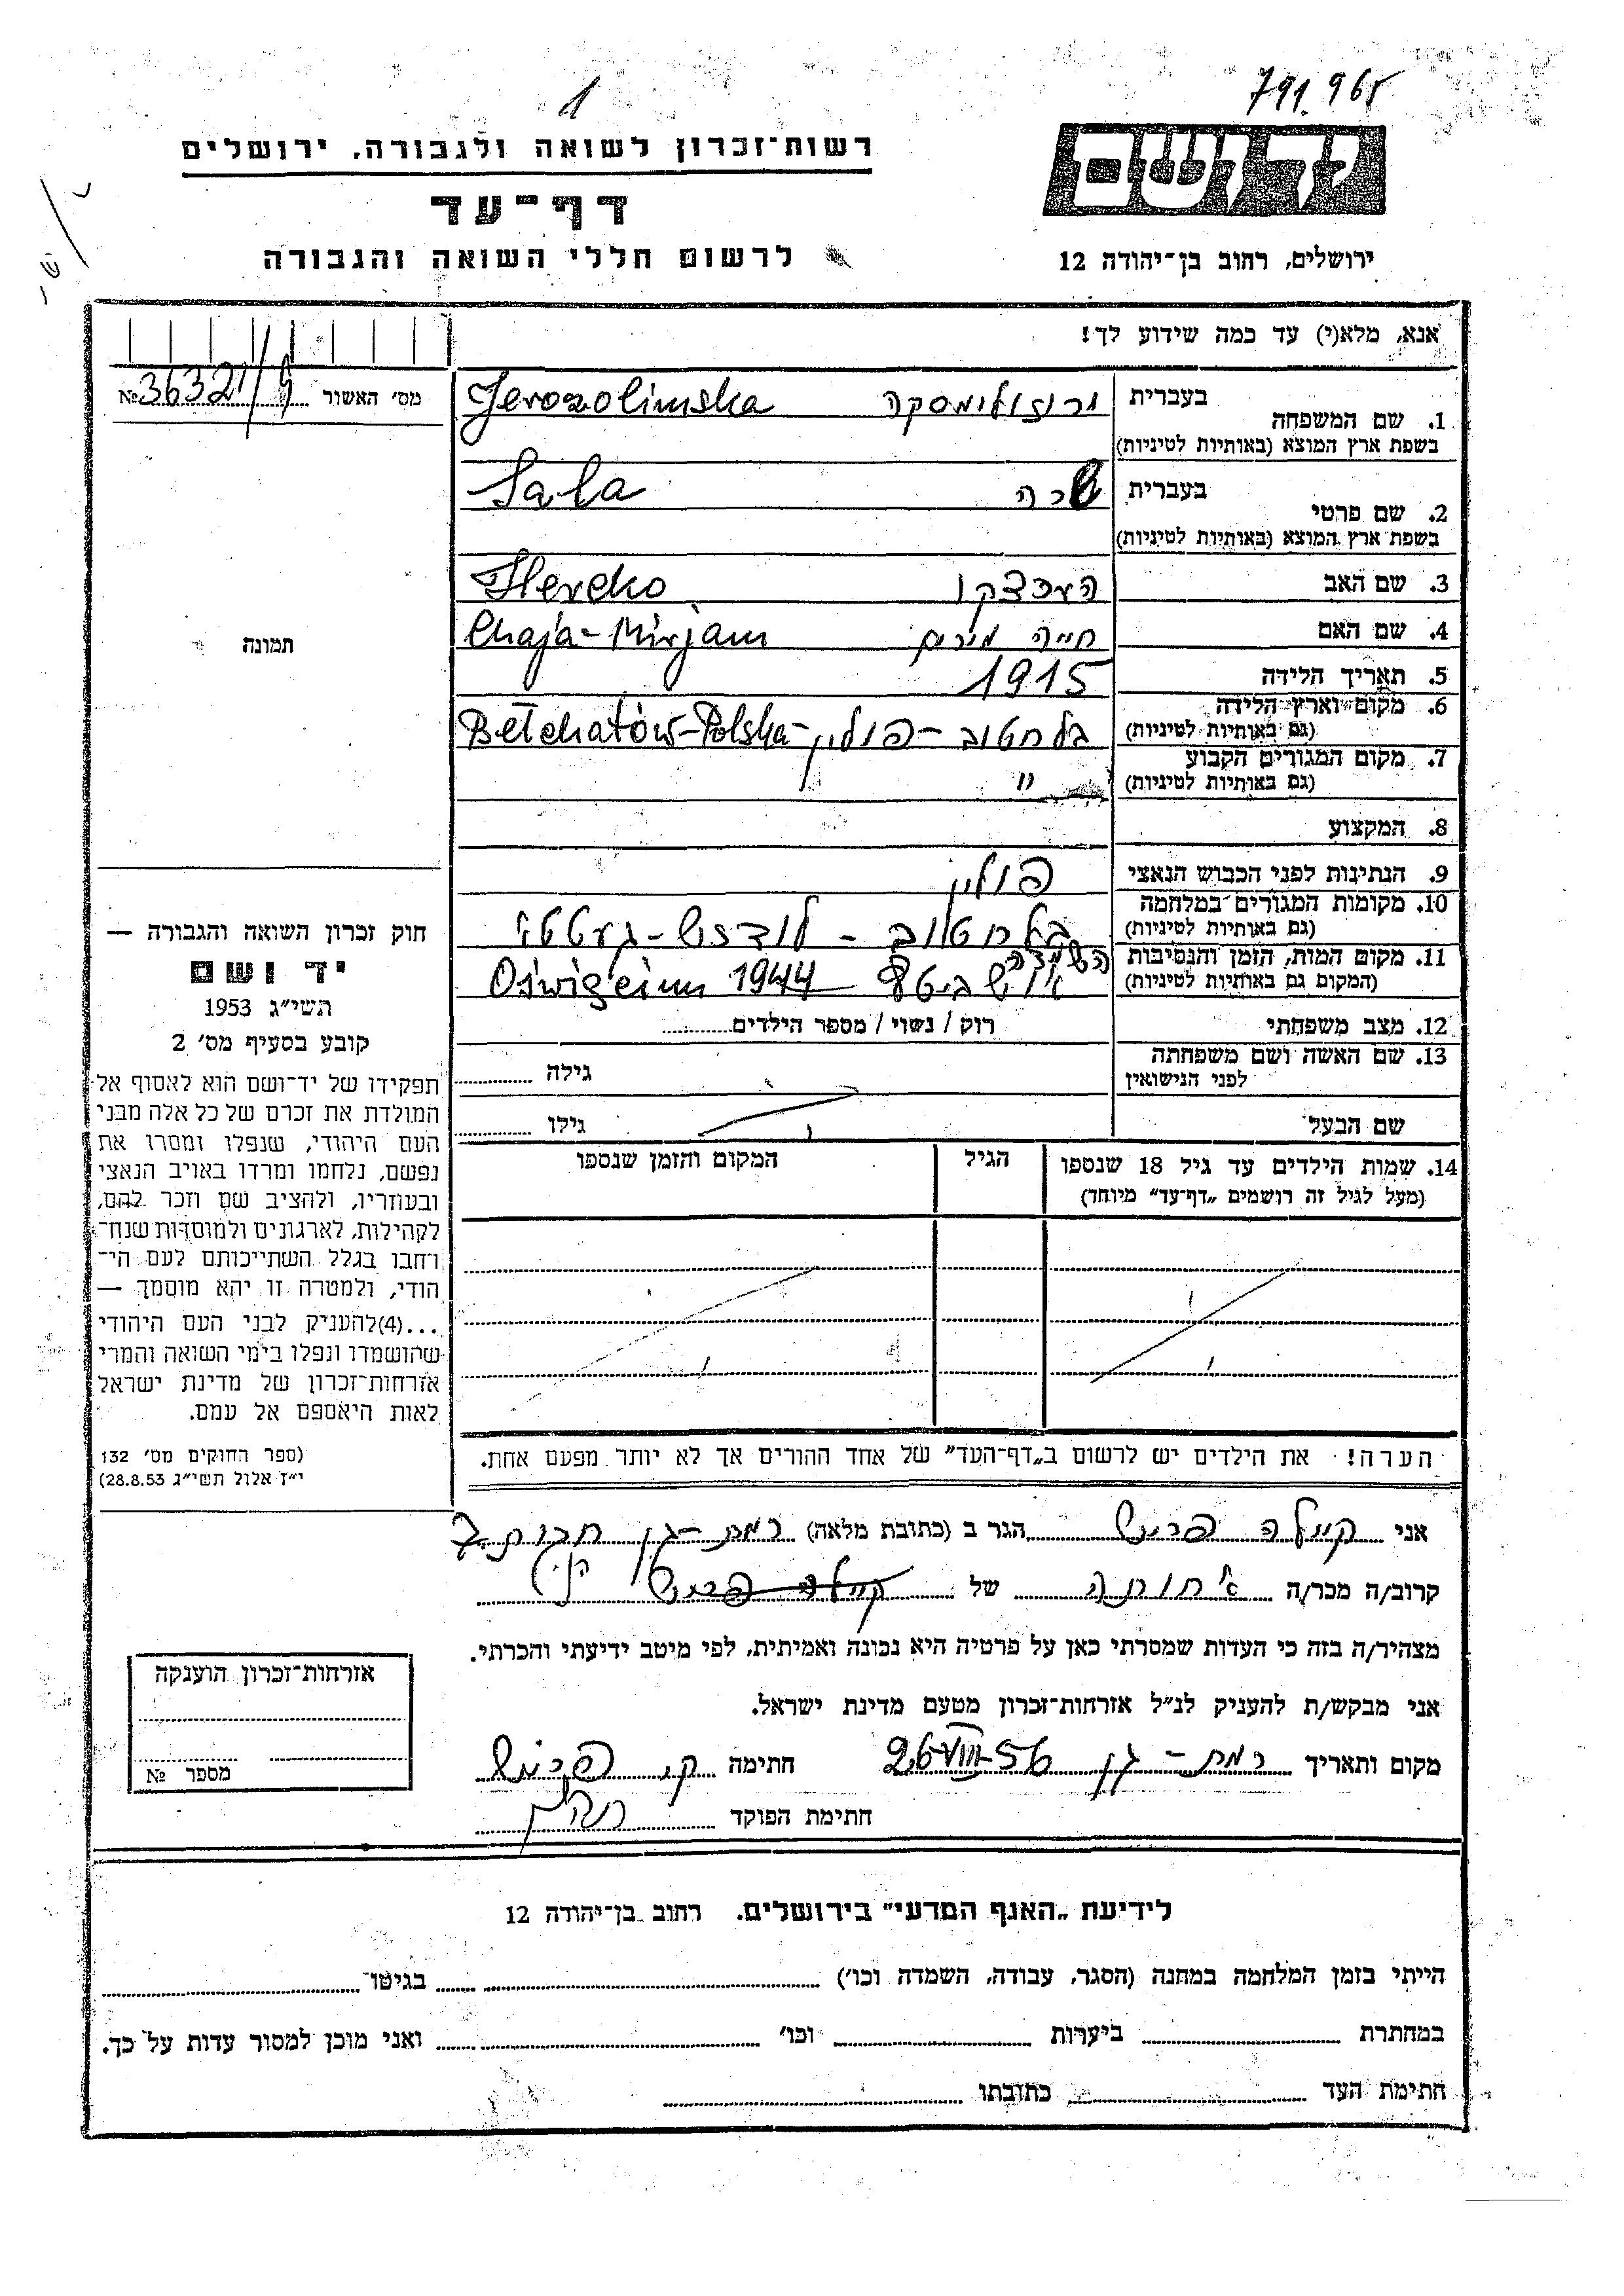 791965
1
רשות־זכרון לשואה ולגבורה, ירושלים
יד ושם
דף־עד
לרשום חללי השואה והגבורה
ירושלים, רחוב בן־יהודה 12
אנא, מלא(י) עד כמה שידוע לך!
מס׳ האשור №36321/
1. שם המשפחה בעברית ירוזולימסקה Jerozolimska
בשפת ארץ המוצא (באותיות לטיניות)
2. שם פרטי בעברית שרה Sala
בשפת ארץ המוצא (באותיות לטיניות)
3. שם האב Hercko
4. שם האם חייה מירים Chaja-Mirjam
5. תאריך הלידה 1915
6. מקום וארץ הלידה בלחטוב - פולין - Bełchatów-Polska
(גם באותיות לטיניות)
7. מקום המגורים הקבוע "
(גם באותיות לטיניות)
8. המקצוע
9. הנתינות לפני הכבוש הנאצי פולין
10. מקומות המגורים במלחמה בלחטוב - לודזש - געטטו
(גם באותיות לטיניות)
11. מקום המות, הזמן והנסיבות השמדה
(המקום גם באותיות לטיניות) Oświęcim 1944
12. מצב משפחתי רוק / נשוי / מספר הילדים
13. שם האשה ושם משפחתה גילה
לפני הנישואין
שם הבעל גילו
14. שמות הילדים עד גיל 18 שנספו הגיל המקום והזמן שנספו
(מעל לגיל זה רושמים „דף־עד” מיוחד)
הערה! את הילדים יש לרשום ב„דף־העד” של אחד ההורים אך לא יותר מפעם אחת.
תמונה
חוק זכרון השואה והגבורה —
יד ושם
תשי״ג 1953
קובע בסעיף מס׳ 2
תפקידו של יד־ושם הוא לאסוף אל
המולדת את זכרם של כל אלה מבני
העם היהודי, שנפלו ומסרו את
נפשם, נלחמו ומרדו באויב הנאצי
ובעוזריו, ולהציב שם וזכר להם,
לקהילות, לארגונים ולמוסדות שנח־
רחבו בגלל השתייכותם לעם הי־
הודי, ולמטרה זו יהא מוסמך —
...(4)להעניק לבני העם היהודי
שהושמדו ונפלו בימי השואה והמרי
אזרחות־זכרון של מדינת ישראל
לאות היאספם אל עמם.
(ספר החוקים מס׳ 132
י״ז אלול תשי״ג 28.8.53)
אני קיילה הגר ב (כתובת מלאה) רמת-גן
קרוב/ה מכר/ה אחותה של
מצהיר/ה בזה כי העדות שמסרתי כאן על פרטיה היא נכונה ואמיתית, לפי מיטב ידיעתי והכרתי.
אני מבקש/ת להעניק לנ״ל אזרחות־זכרון מטעם מדינת ישראל.
מקום ותאריך רמת-גן 26-VIII-56 חתימה
חתימת הפוקד
אזרחות־זכרון הוענקה
מספר №
לידיעת „האגף המדעי” בירושלים. רחוב בן־יהודה 12
הייתי בזמן המלחמה במחנה (הסגר, עבודה, השמדה וכו׳) בגיטו
במחתרת ביערות וכו׳ ואני מוכן למסור עדות על כך.
חתימת העד כתובתו